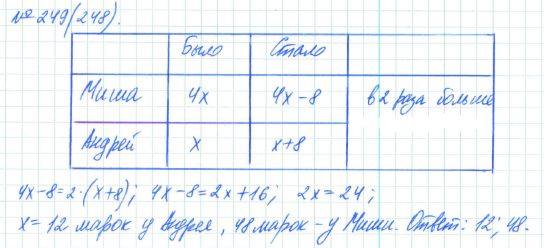 № 249 (248).
Было Стало
Миша 4x 4x-8 в 2 раза больше
Андрей x x+8
4x-8=2·(x+8); 4x-8=2x+16; 2x=24;
x=12 марок у Андрея, 48 марок - у Миши. Ответ: 12; 48.